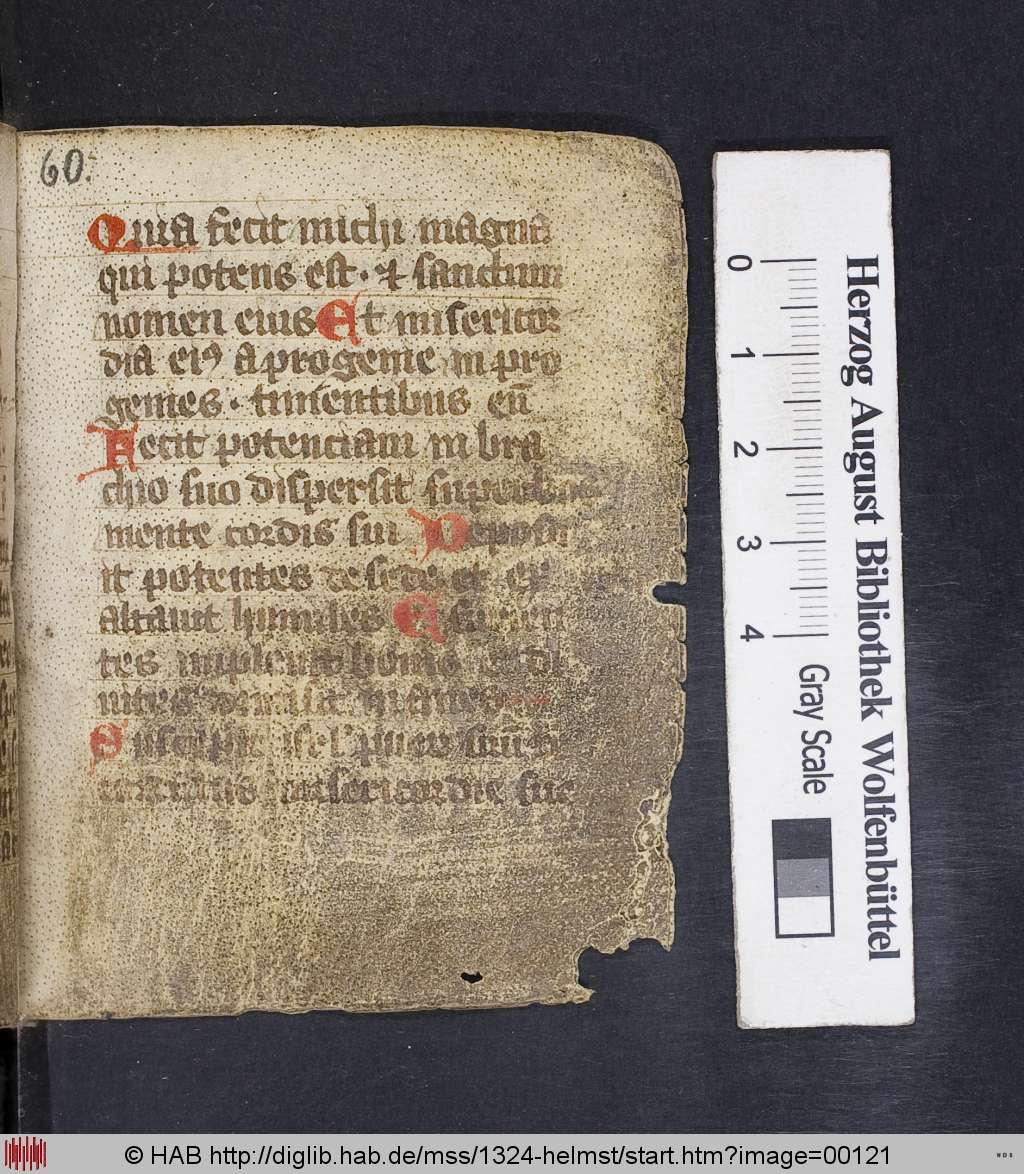 60.
Quia fecit michi magna
qui potens est · ⁊ sanctum
nomen eius Et misericor
dia eiꝰ a progenie in pro
genies · timentibus eū
Fecit potenciam in bra
chio suo dispersit
mente cordis sui Deposu
it potentes de sede et ex
altauit humiles Esurien
tes impleuit bonis
Suscepit isrl' puerū suū
misericordie sue
0 1 2 3 4
Gray Scale
Herzog August Bibliothek Wolfenbüttel
© HAB http://diglib.hab.de/mss/1324-helmst/start.htm?image=00121